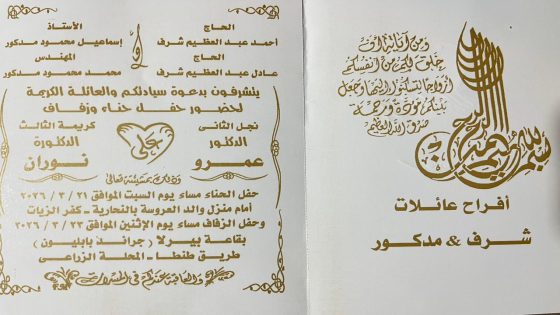 بسم الله الرحمن الرحيم
ومن آياته أن
خلق لكم من أنفسكم
أزواجا لتسكنوا إليها وجعل
بينكم مودة ورحمة
صدق الله العظيم
أفراح عائلات
شرف & مدكور
الحاج
أحمد عبد العظيم شرف
الحاج
عادل عبد العظيم شرف
و
الأستاذ
إسماعيل محمود مدكور
المهندس
محمد محمود مدكور
يتشرفون بدعوة سيادتكم والعائلة الكريمة
لحضور حفل حناء وزفاف
نجل الثانى
الدكتور
عمرو
على
كريمة الثالث
الدكتورة
نوران
وذلك بمشيئة الله تعالى
حفل الحناء مساء يوم السبت الموافق ٢٠٢٦ / ٣ / ٢١
أمام منزل والد العروسة بالنحارية - كفر الزيات
وحفل الزفاف مساء يوم الإثنين الموافق ٢٠٢٦ / ٣ / ٢٣
بقاعة بيرلا ( جراند بابليون )
طريق طنطا - المحلة الزراعى
والعاقبة عندكم فى المسرات